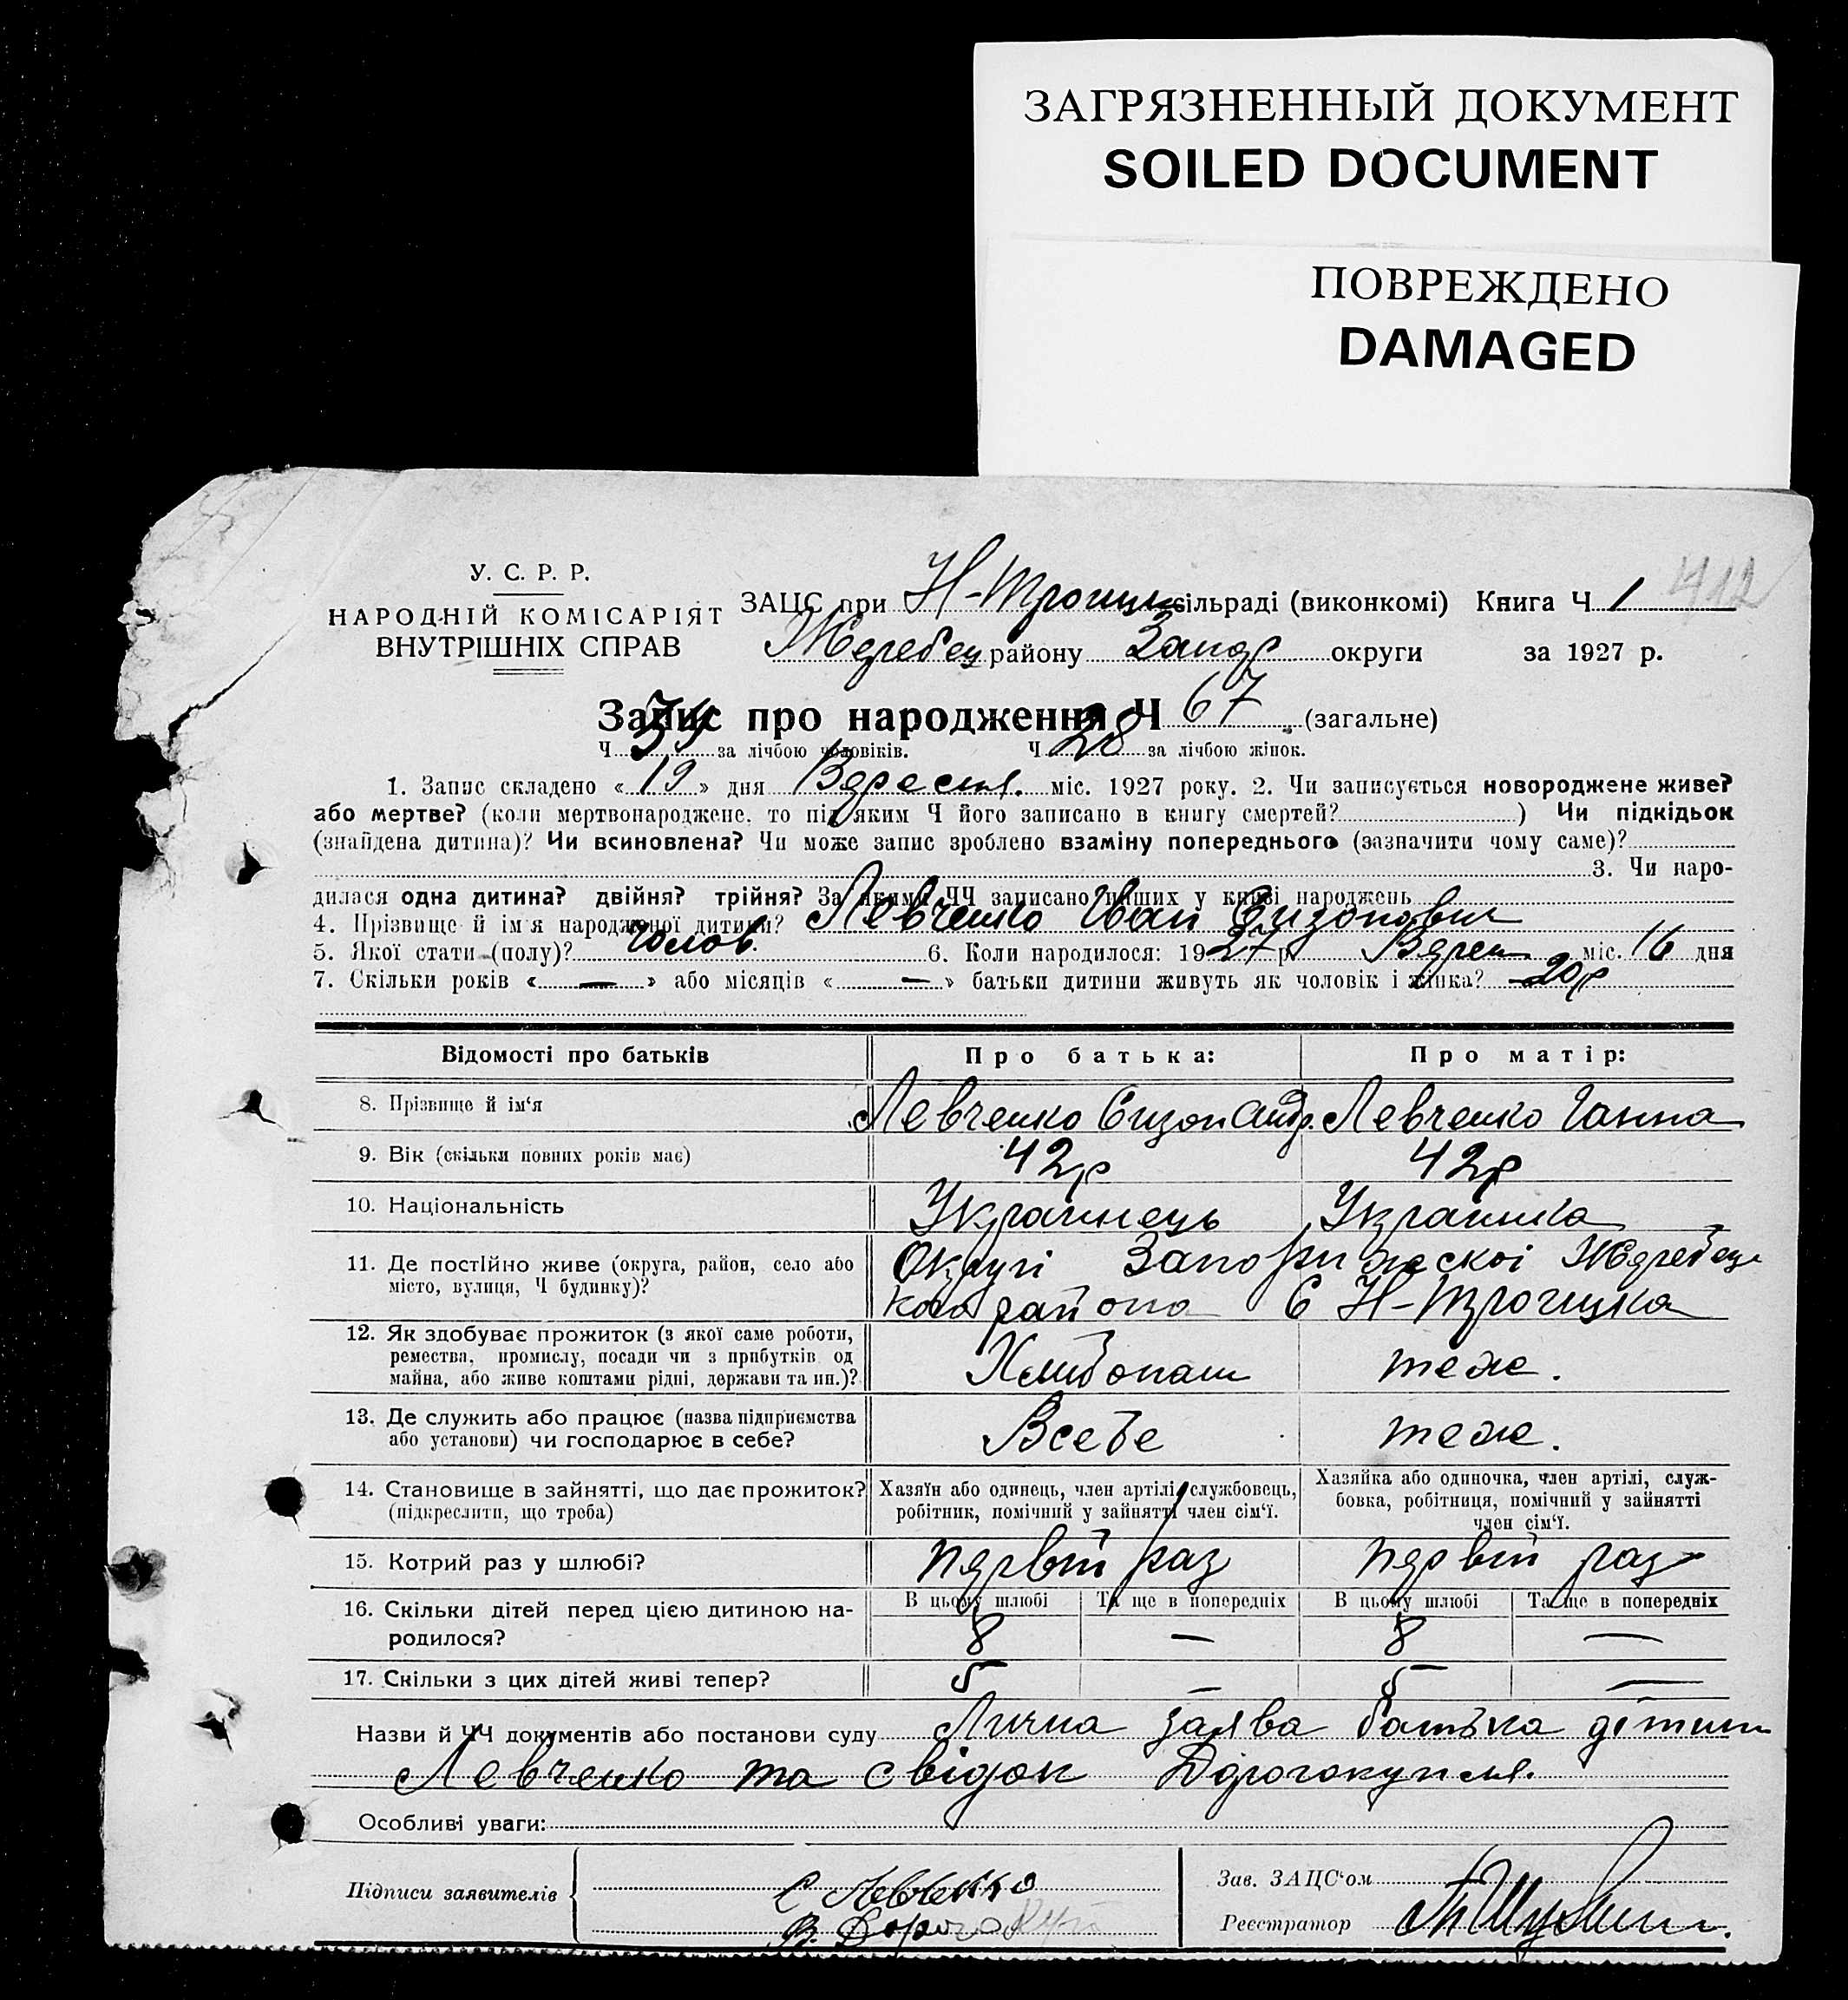 ЗАГРЯЗНЕННЫЙ ДОКУМЕНТ
SOILED DOCUMENT
ПОВРЕЖДЕНО
DAMAGED
412
У. С. Р. Р.
НАРОДНІЙ КОМІСАРІЯТ
ВНУТРІШНІХ СПРАВ
ЗАЦС при Н-Троицк сільраді (виконкомі) Книга Ч 1
Жеребец району Запор округи за 1927 р.
Запис про народження Ч 67 (загальне)
Ч 39 за лічбою чоловіків. Ч 28 за лічбою жінок.
1. Запис складено « 19 » дня Вересня міс. 1927 року. 2. Чи записується новороджене живе?
або мертве? (коли мертвонароджене, то під яким Ч його записано в книгу смертей? ) Чи підкідьок
(знайдена дитина)? Чи всиновлена? Чи може запис зроблено взаміну попереднього (зазначити чому саме)?
3. Чи наро-
дилася одна дитина? двійня? трійня? За якими ЧЧ записано инших у книзі народжень
4. Прізвище й ім'я народженої дитини? Левченко Іван Єизонович
5. Якої стати (полу)? чолов. 6. Коли народилося: 1927 р Верес міс. 16 дня
7. Скільки років « — » або місяців « — » батьки дитини живуть як чоловік і жінка? 20 р
Відомості про батьків Про батька: Про матір:
8. Прізвище й ім'я Левченко Єизон Андр. Левченко Ганна
9. Вік (скільки повних років має) 42 р 42 р
10. Національність Українець Українка
11. Де постійно живе (округа, район, село або Округі Запорижскоі Жеребец
місто, вулиця, Ч будинку)? кого района С Н-Троицка
12. Як здобуває прожиток (з якої саме роботи,
ремества, промислу, посади чи з прибутків од Хлибопаш теж.
майна, або живе коштами рідні, держави та ин.)?
13. Де служить або працює (назва підприємства
або установи) чи господарює в себе? Всебе теж.
14. Становище в зайнятті, що дає прожиток? Хазяїн або одинець, член артілі, службовець, Хазяйка або одиночка, член артілі, служ-
(підкреслити, що треба) робітник, помічний у зайнятті член сім'ї. бовка, робітниця, помічний у зайнятті
член сім'ї.
15. Котрий раз у шлюбі? первій раз первій раз
В цьому шлюбі Та ще в попередніх В цьому шлюбі Та ще в попередніх
16. Скільки дітей перед цією дитиною на-
родилося? 8 — 8 —
17. Скільки з цих дітей живі тепер? 5 — 5 —
Назви й ЧЧ документів або постанови суду Лична заява батька дітини
Левченко та свідок Дорогокупля.
Особливі уваги:
Підписи заявителів С Левченко
В. Дорогокуп
Зав. ЗАЦС'ом
Реєстратор